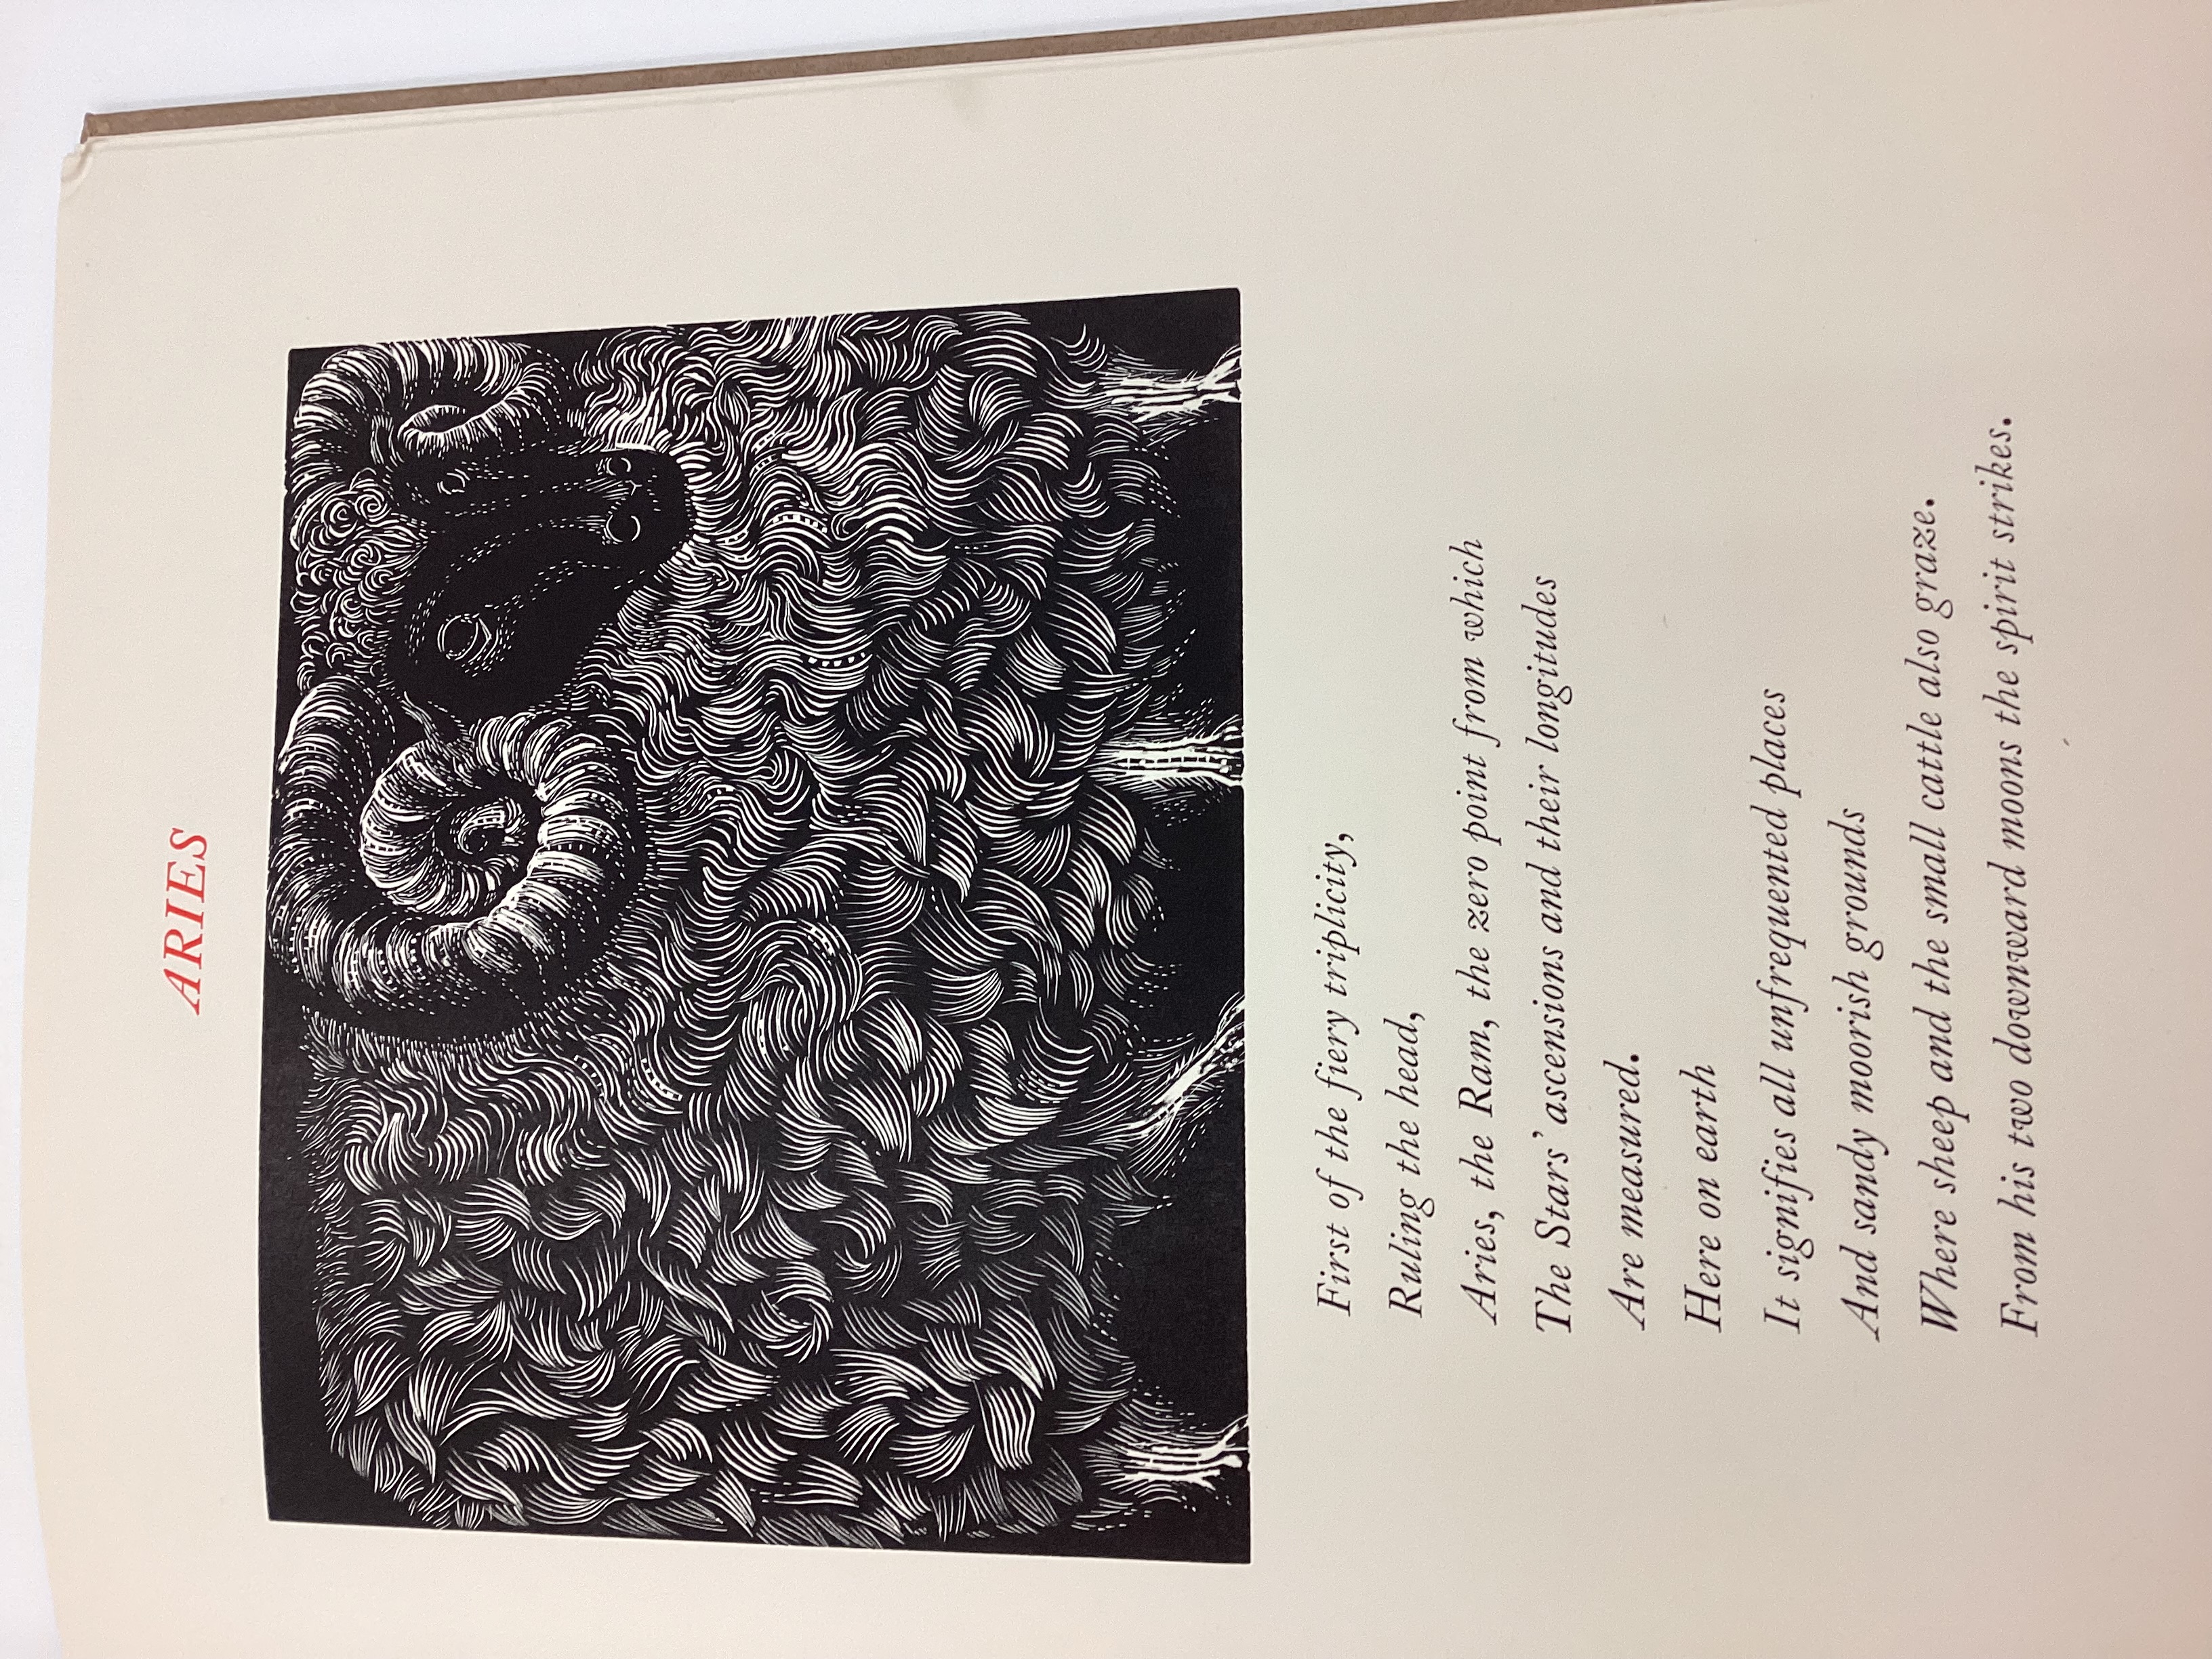 ARIES
First of the fiery triplicity,
Ruling the head,
Aries, the Ram, the zero point from which
The Stars’ ascensions and their longitudes
Are measured.
Here on earth
It signifies all unfrequented places
And sandy moorish grounds
Where sheep and the small cattle also graze.
From his two downward moons the spirit strikes.